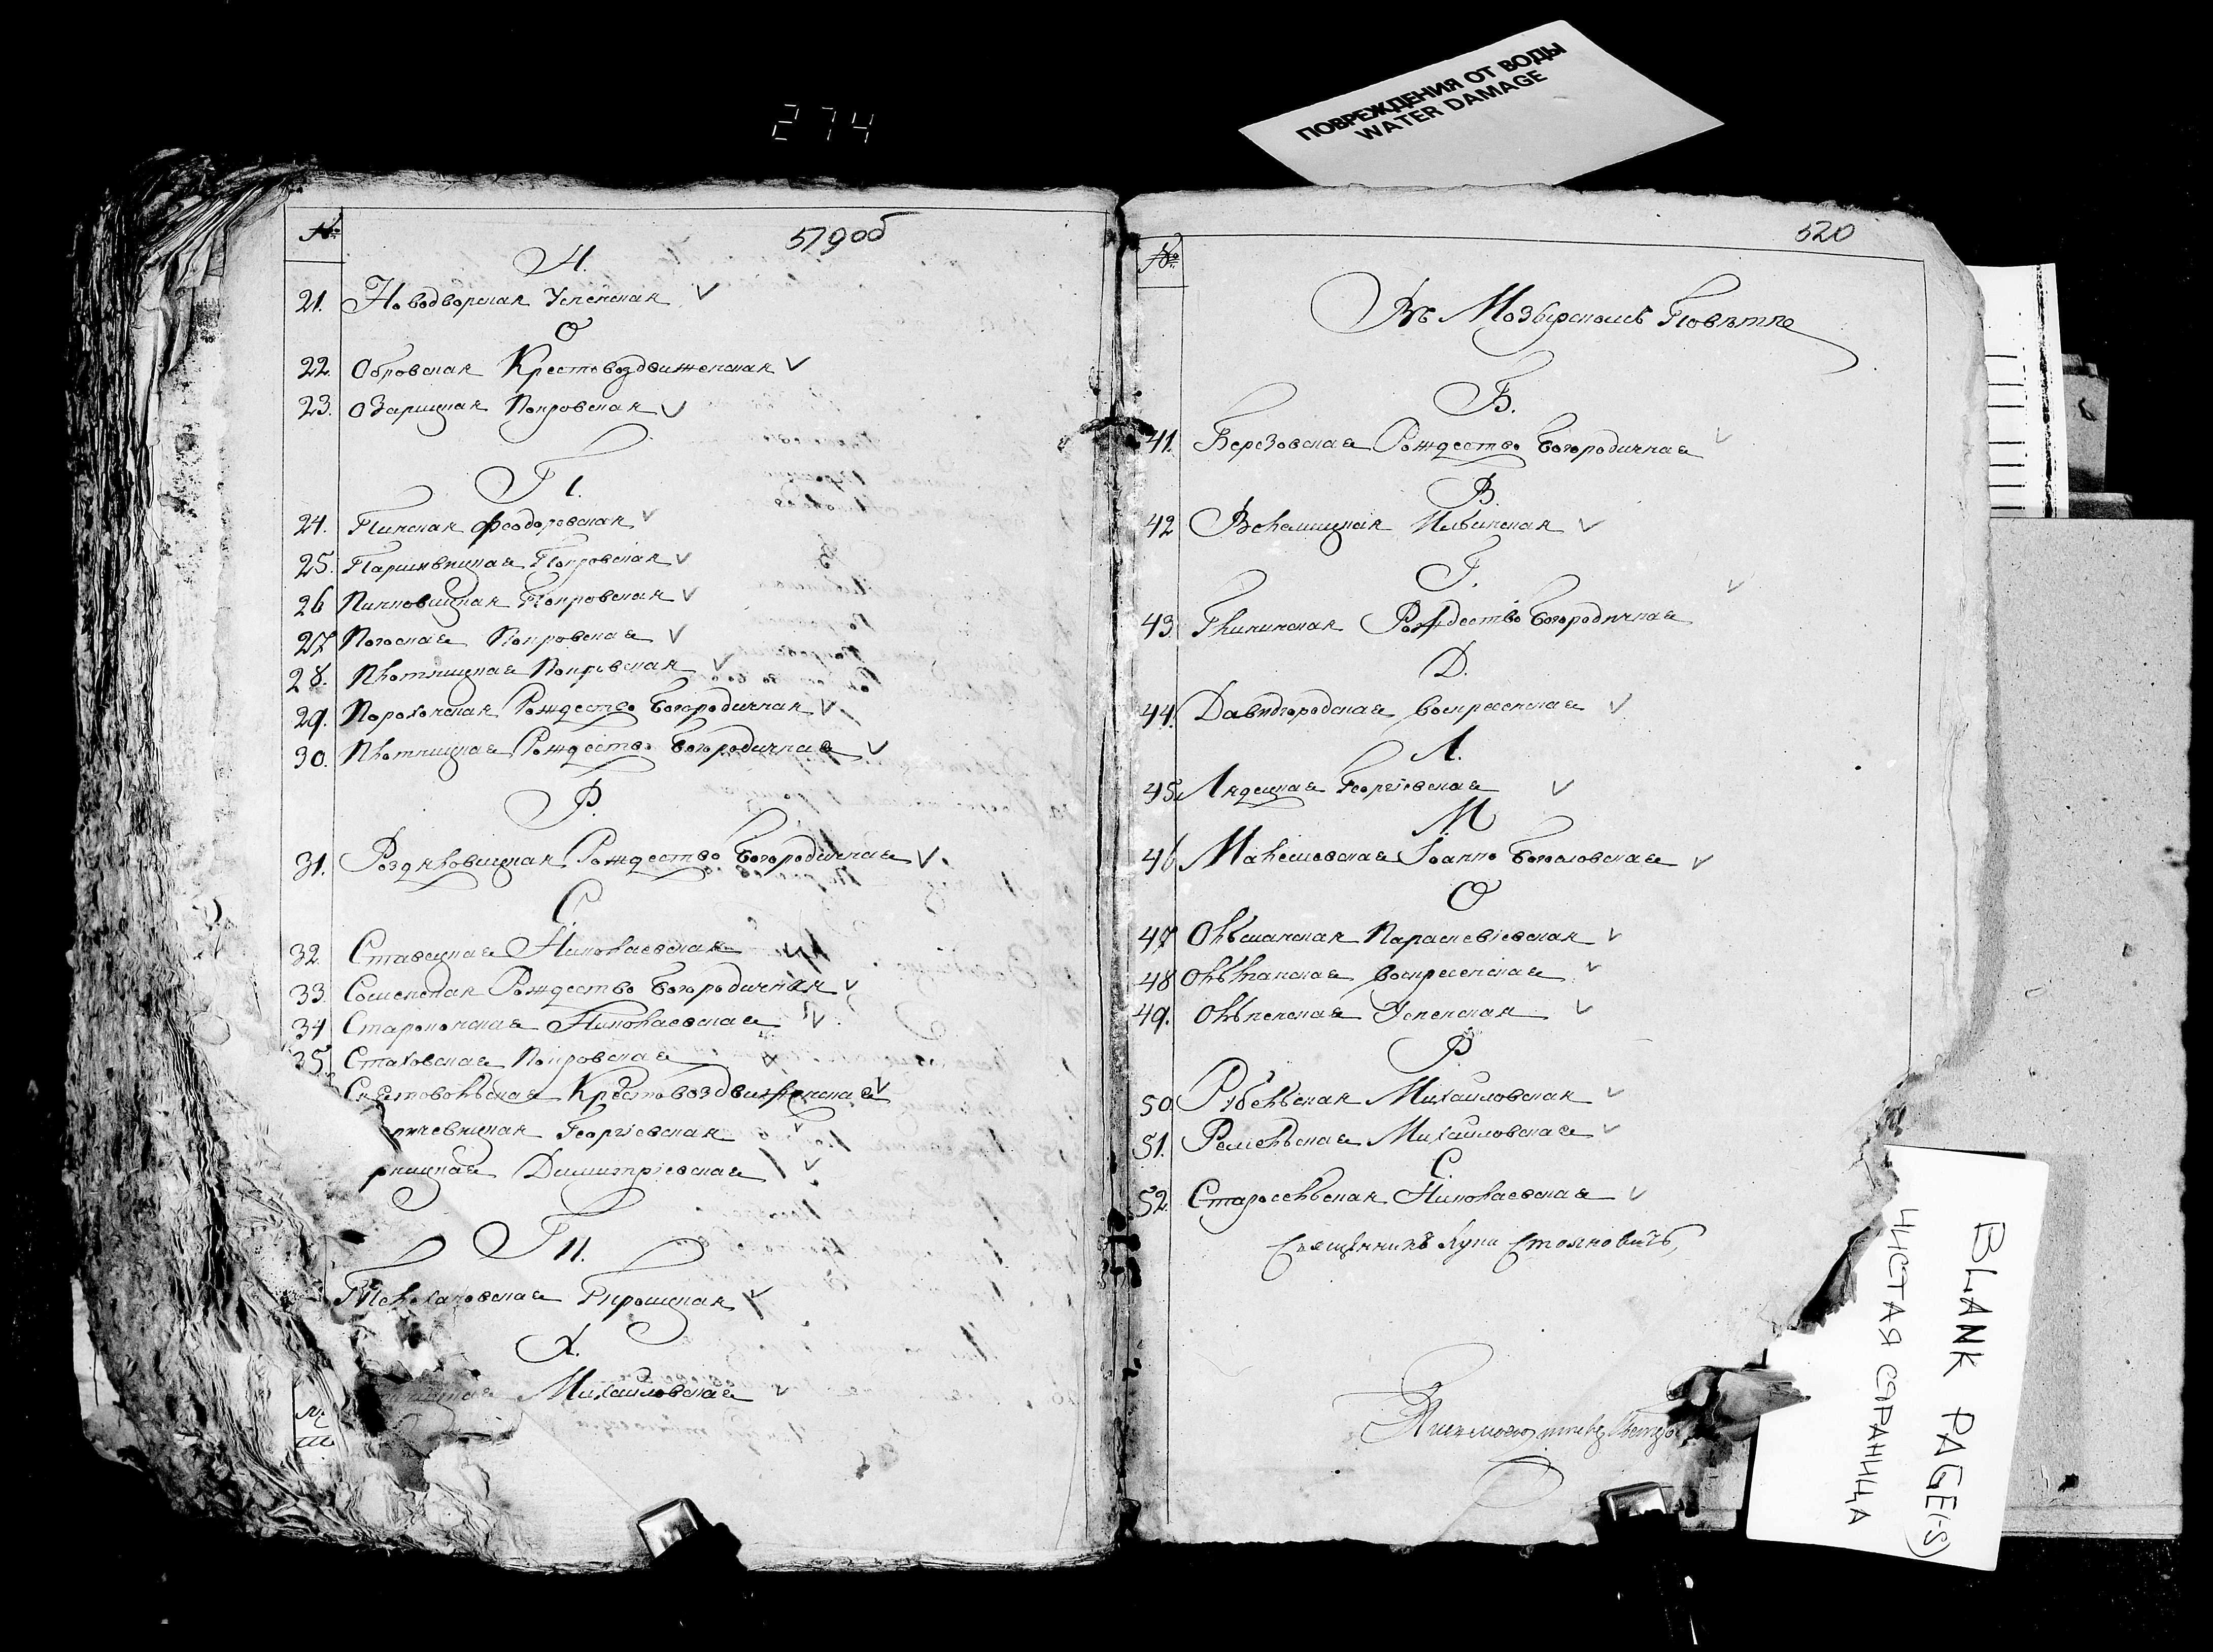 274
ПОВРЕЖДЕНИЯ ОТ ВОДЫ
WATER DAMAGE
№
519об
Н.
21. Новодворская Успенская
О
22. Обровская Крестовоздвиженская
23. Озарицкая Покровская
П.
24. Пинская Феодоровская
25. Паршевицкая Покровская
26 Пинковицкая Покровская
27 Погоская Покровская
28. Плотницкая Покровская
29. Порохонская Рождество Богородичная
30. Плотницкая Рождество Богородичная
Р.
31. Роздяловицкая Рождество Богородичная
С.
32. Ставецкая Николаевская
33. Сошенская Рождество Богородичная
34 Староконская Николаевская
35. Стаховская Покровская
Святовольская Крестовоздвиженская
Георгіевская
Димитріевская
Т.
Телехановская Троицкая
Х.
Михайловская
520
№
Въ Мозырскомъ Повѣте
Б.
41. Березовская Рождество Богородичная
В.
42 Велемицкая Ильинская
Г.
43. Глинская Рождество Богородичная
Д.
44. Давидгородская Воскресенская
Л.
45. Лядецкая Георгіевская
М
46 Малешевская Іоанно Богословская
О
47 Ольшанская Параскевіевская
48 Ольманская Воскресенская
49. Ольпенская Успенская
Р
50. Рубельская Михайловская
51. Ремельская Михайловская
С.
52. Старосельская Николаевская
Священникъ Лука Стояновичъ
BLANK PAGE(-S)
ЧИСТАЯ СТРАНИЦА